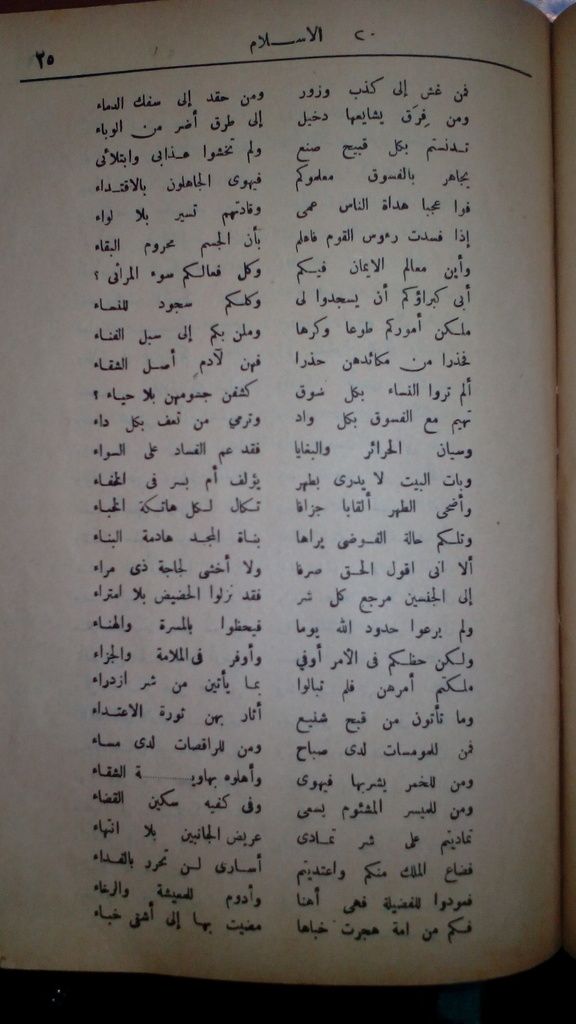 ٢٠ الاسلام ٣٥
فمن غش إلى كذب وزور ومن حقد إلى سفك الدماء
ومن فِرَق يشايعها دخيل إلى طرق أضر من الوباء
تدنستم بكل قبيح صنع ولم تخشوا عذابى وابتلائى
يجاهر بالفسوق معلموكم فيهوى الجاهلون بالاقتداء
فوا عجبا هداة الناس عمى وقادتهم تسير بلا لواء
إذا فسدت رءوس القوم فاعلم بأن الجسم محروم البقاء
وأين معالم الايمان فيكم وكل فعالكم سوء المرائى ؟
أبى كبراؤكم أن يسجدوا لى وكلكم سجود للنساء
ملكن أموركم طوعا وكرها وملن بكم إلى سبل الفناء
فحذرا من مكائدهن حذرا فهن لآدم أصل الشقاء
ألم تروا النساء بكل سوق كشفن جسومهن بلا حياء ؟
تهيم مع الفسوق بكل واد وترمي من تعف بكل داء
وسيان الحرائر والبغايا فقد عم الفساد على السواء
وبات البيت لا يدرى بطهر يؤلف أم بسر فى الخفاء
وأضحى الطهر ألقابا جزافا تكال لكل هاتكة الخباء
وتلكم حالة الفوضى يراها بناة المجد هادمة البناء
ألا انى اقول الحق صرفا ولا أخشى لجاجة ذى مراء
إلى الجنسين مرجع كل شر فقد نزلوا الحضيض بلا امتراء
ولم يرعوا حدود الله يوما فيحظوا بالمسرة والهناء
ولكن حظكم فى الامر أوفي وأوفر فى الملامة والجزاء
ملكتم أمرهن فلم تبالوا بما يأتين من شر ازدراء
وما تأتون من قبح شنيع أثار بهن ثورة الاعتداء
فمن للمومسات لدى صباح ومن للراقصات لدى مساء
ومن للخمر يشربها فيهوى وأهلوه بهاوية الشقاء
ومن للميسر المشئوم يسعى وفى كفيه سكين القضاء
تماديتم على شر تمادى عريض الجانبين بلا انتهاء
فضاع الملك منكم واعتديتم أسارى لن تحرر بالفداء
فعودوا للفضيلة فهى أهنا وأدوم للمعيشة والرخاء
فكم من امة هجرت خباها مضيت بها إلى أشقى خباء